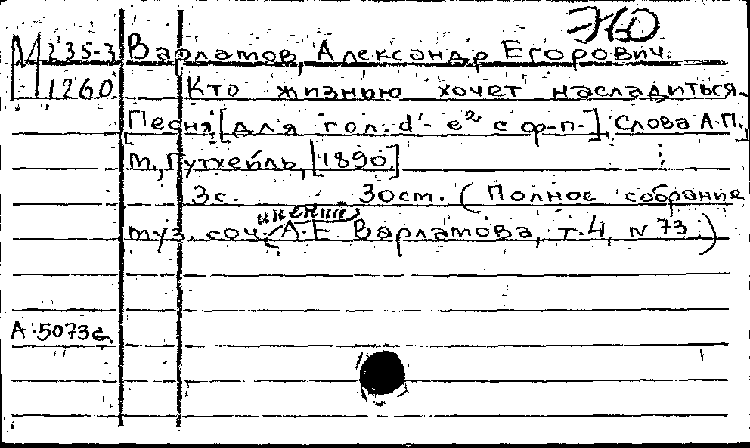 ЭКО
М 235-3 Варламов, Александр Егорович.
1260 Кто жизнью хочет насладиться.
Песня [для гол. d'- e² с ф-п.]. Слова А.П.,
м., Гутхейль, [1890]
3с. 30ст. (Полное собрание
муз. соч. А.Е. Варламова, т.4, N 73.)
А.5073г.